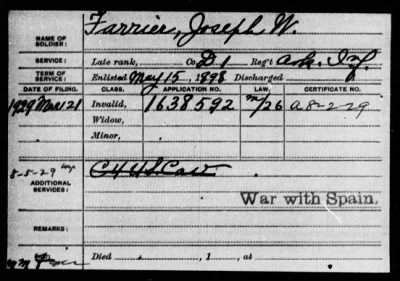 NAME OF SOLDIER: Farrier, Joseph W.
SERVICE: Late rank, Co D. 1 Reg't Ark. Inf.
TERM OF SERVICE: Enlisted May 15, 1898 Discharged
DATE OF FILING. CLASS. APPLICATION NO. LAW. CERTIFICATE NO.
1929 Mar 21 Invalid, 1638592 M/26 A 8-2-29
Widow,
Minor,
8-5-29
ADDITIONAL SERVICES:
War with Spain.
REMARKS:
Died , 1 , at